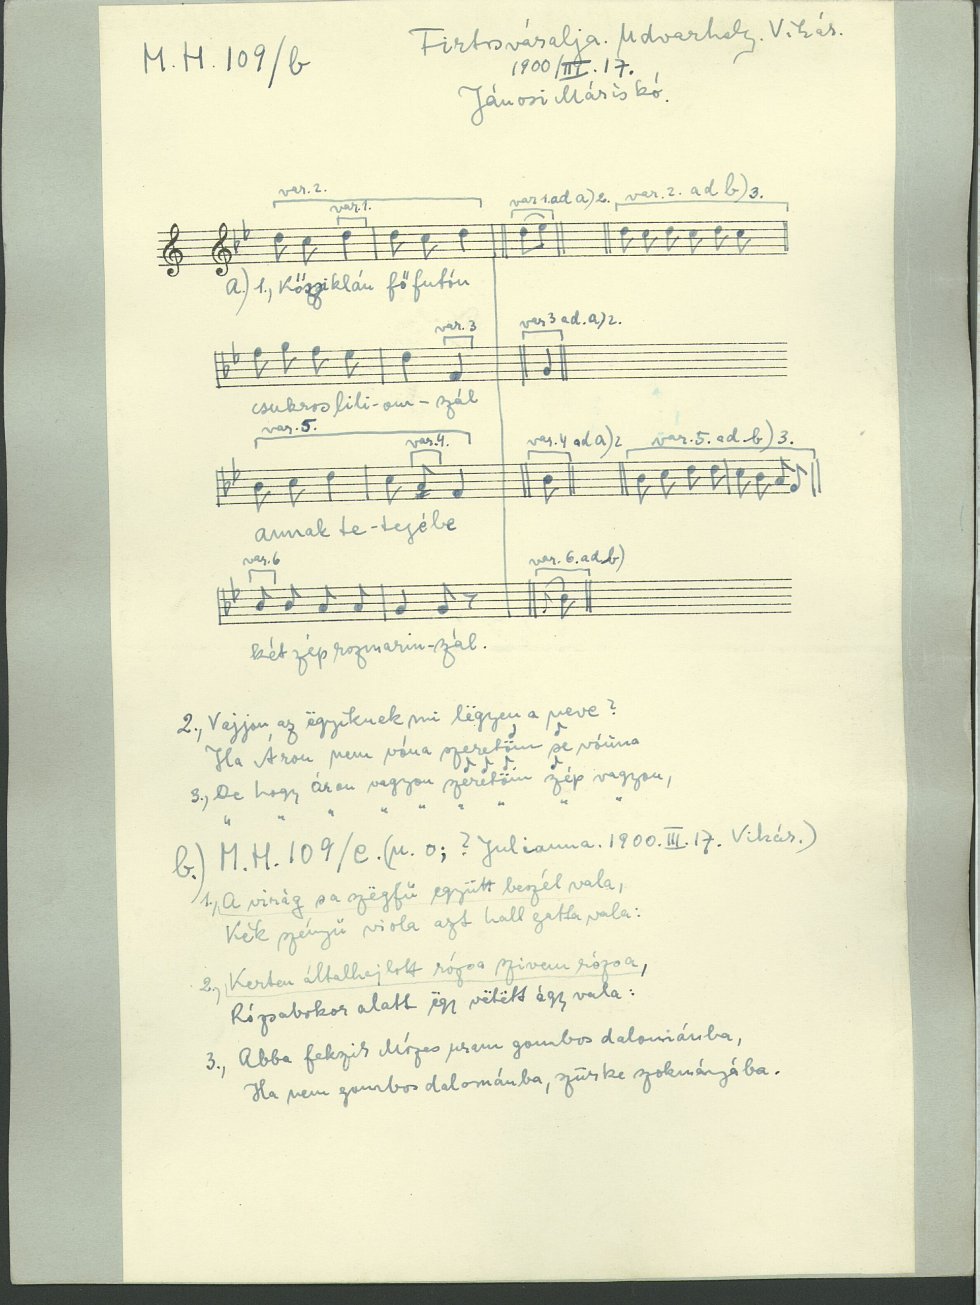 M.H. 109/b
Firtosváralja. Udvarhely. Vikár.
1900/III. 17.
Jánosi Máriskó.
var. 2.
var. 1.
var 1. ad a) 2.
var. 2. ad b) 3.
a.) 1., Kősziklán főfutón
var. 3
var 3 ad. a) 2.
csukros lili-om-szál
var. 5.
var. 4.
var. 4 ad a) 2
var. 5. ad b) 3.
annak te-tejébe
var. 6
var. 6. ad b)
két szép rozmarin-szál.
2., Vajjon, az ëgyiknek mi lëgyen a neve?
Ha Áron nem vóna szeretőm se vóuna
3., De hogy áron vagyon szeretőm szép vagyon,
" " " " " " " " "
b.) M.H. 109/e. (u. o; ? Julianna. 1900. III. 17. Vikár.)
1., A virág sa szëgfű együtt beszél vala,
Kék szényű viola azt hallgatta vala:
2., Kerten általhajlott rózsa szivem rózsa,
Rózsabokor alatt ëgy vëtëtt ágy vala:
3., Abba fekszik Mózes uram gombos dalomiánba,
Ha nem gombos dalománba, szürke szokmányába.